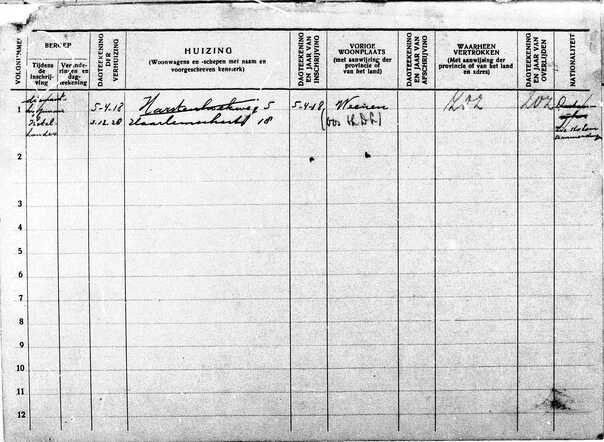 VOLGNUMMER
BEROEP
Tijdens de inschrij- ving
Ver nde- rin en en dag- teekening
DAGTEEKENING DER VERHUIZING
HUIZING
(Woonwagens en -schepen met naam en voorgeschreven kenmerk)
DAGTEEKENING EN JAAR VAN INSCHRIJVING
VORIGE WOONPLAATS
(met aanwijzing der provincie of van het land)
DAGTEEKENING EN JAAR VAN AFSCHRIJVING
WAARHEEN VERTROKKEN
(Met aanwijzing der provincie of van het land en adres)
DAGTEEKENING EN JAAR VAN OVERLIJDEN
NATIONALITEIT
1
5-4.18 Harstenhoekweg 5 5-4-18 Weenen VOZ VOZ
3.12.28 18
2
3
4
5
6
7
8
9
10
11
12